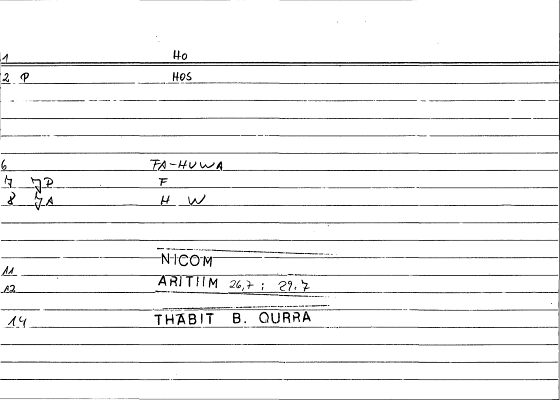 1 HO
2 P HOS
6 FA-HUWA
7 P F
8 A H W
11 NICOM
12 ARITIIM 26,7 : 29.7
14 THABIT B. QURRA